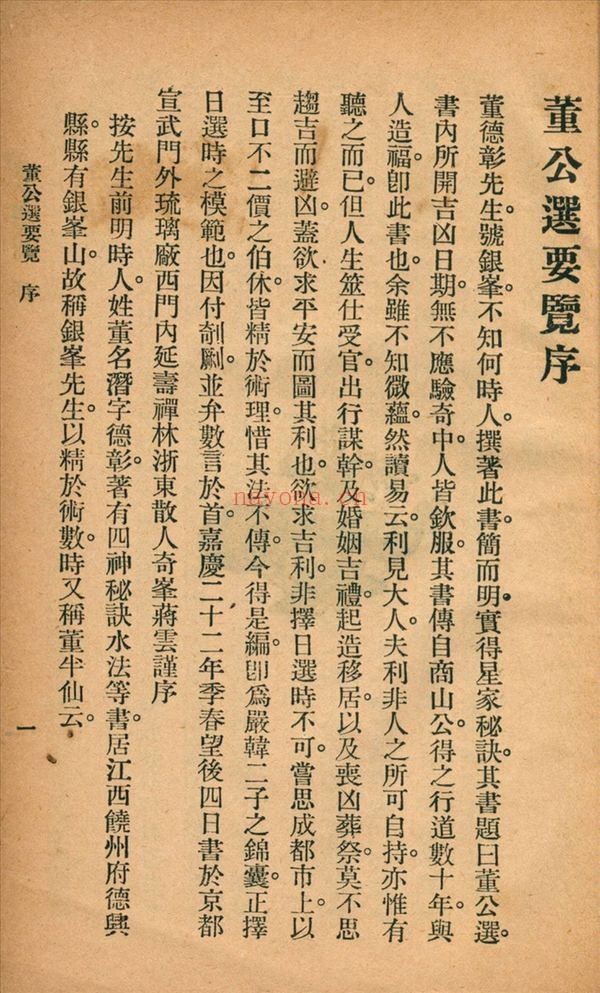 董公選要覽序
董德彰先生。號銀峯。不知何時人。撰著此書。簡而明。實得星家秘訣。其書題曰董公選。
書內所開吉凶日期。無不應驗奇中。人皆欽服。其書傳自商山公。得之行道數十年。與
人造福。卽此書也。余雖不知微蘊。然讀易云。利見大人。夫利非人之所可自持。亦惟有
聽之而已。但人生筮仕受官。出行謀幹。及婚姻吉禮。起造移居。以及喪凶葬祭。莫不思
趨吉而避凶。蓋欲求平安而圖其利也。欲求吉利。非擇日選時不可。嘗思成都市上。以
至口不二價之伯休。皆精於術理。惜其法不傳。今得是編。卽爲嚴韓二子之錦囊。正擇
日選時之模範也。因付剞劂。並弁數言於首。嘉慶二十二年季春望後四日書於京都
宣武門外琉璃廠西門內延壽禪林浙東散人奇峯蔣雲謹序
按先生前明時人。姓董名潛字德彰。著有四神秘訣水法等書。居江西饒州府德興
縣。縣有銀峯山。故稱銀峯先生。以精於術數。時又稱董半仙云。
董公選要覽 序
一
nayona.cn